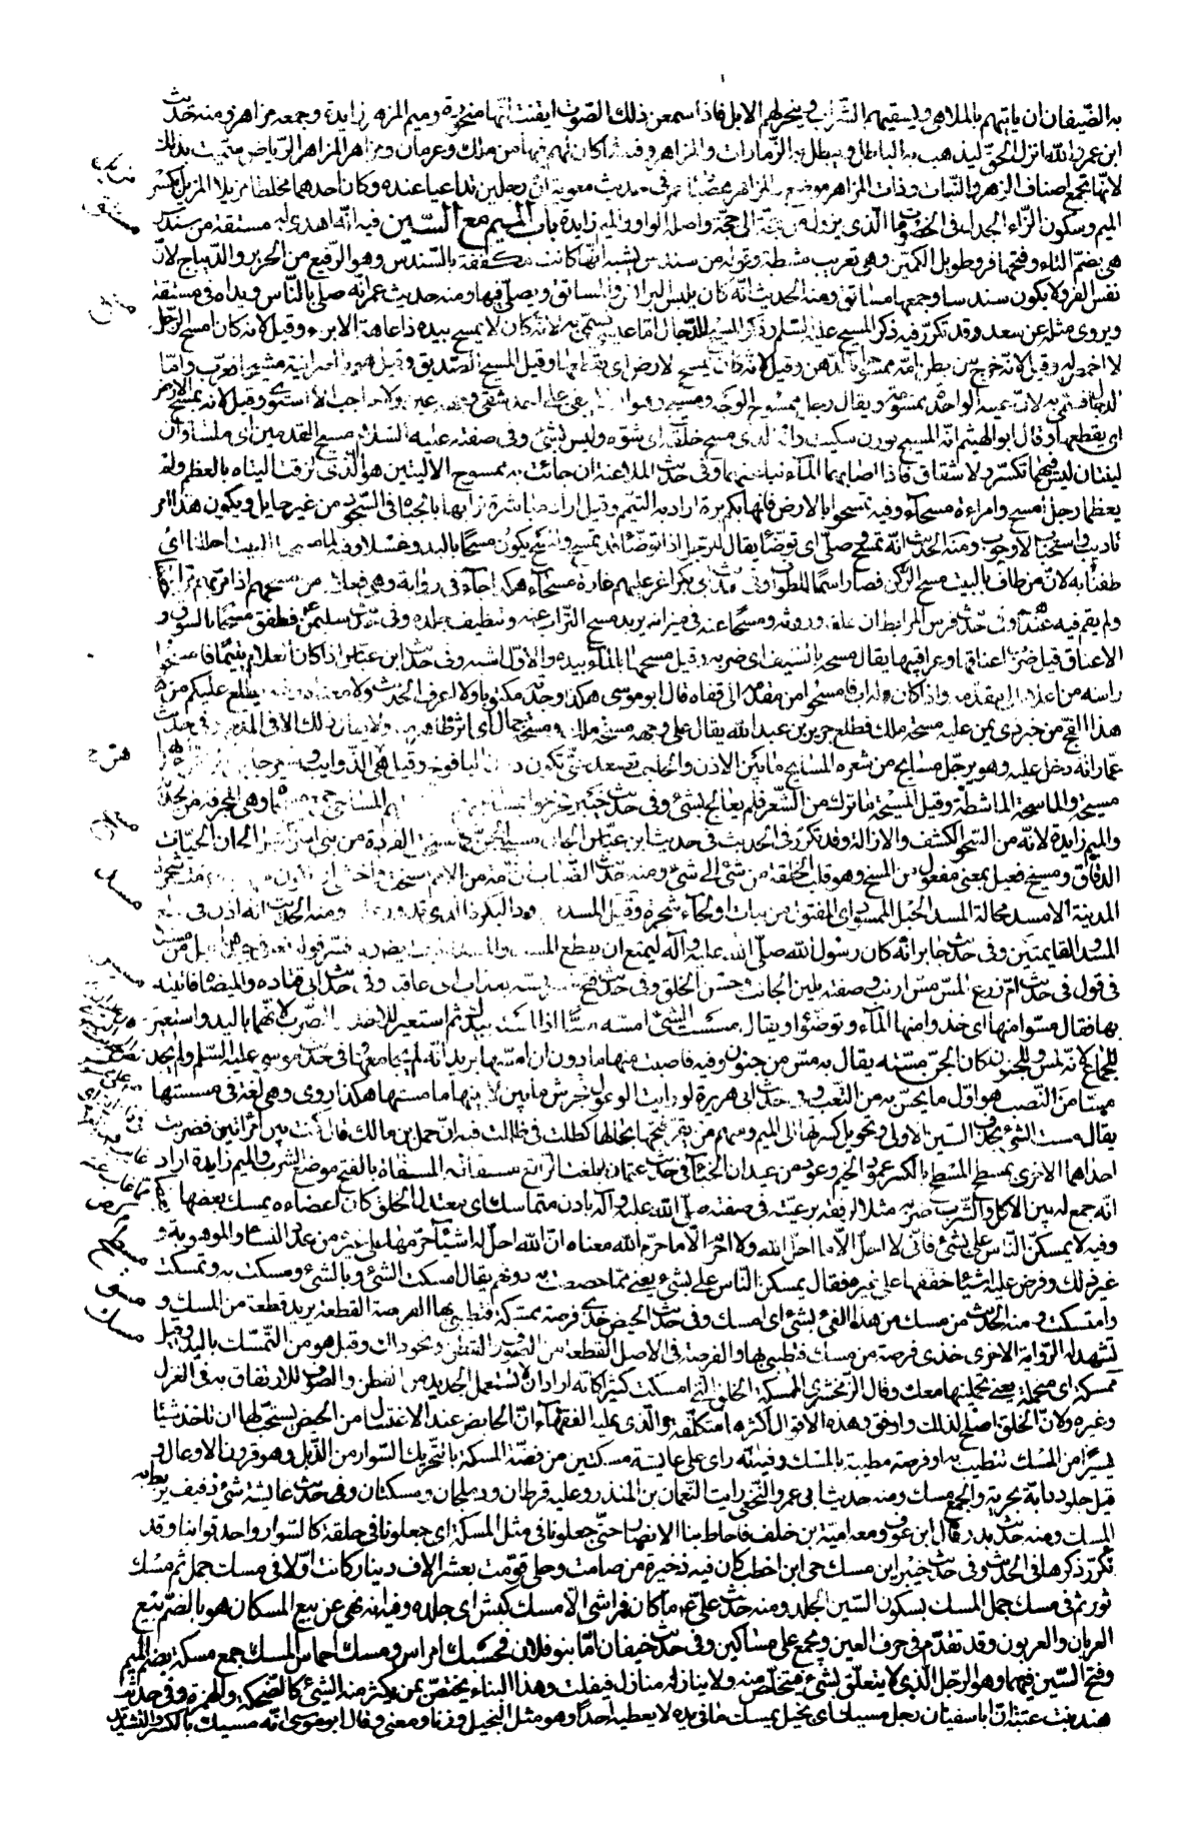 به الضّيفان ان ياتيهم بالملاهى ويسقيهم الشّراب وينحر لهم الابل فاذا سمعن ذلك الصّوت ايقنت انّها منحورة وميم المزهر زايدة وجمعه مزاهر ومنه حديث
ابن عمرو انّ الله انزل الحقّ ليذهب به الباطل ويبطل به الزّمارات والمزاهر وفيه فما كان لهم فيها من ملك وعرمان ومزاهر المزاهر الرّياض سمّيت بذلك
لانّها تجمع اصناف الزهر والنّبات وذات المزاهر موضع والمزاهر فى حديث معوية انّ رجلين تداعيا عنده وكان احدهما مخلطا مزيلا المزيل بكسر
الميم وسكون الزّاء الجدل فى الخصومات الّذى يزول من حجّة الى حجّة واصلها الواو والميم زايدة باب الميم مع السّين فيه انّه اهدى له مستقة من سندس
هى بضمّ التاء وفتحها فرو طويل الكمّين وهى تعريب مشطة وقوله من سندس يشبه انّها كانت مكفّفة بالسّندس وهو الرّفيع من الحرير والدّيباج لانّ
نفس الفرو لا يكون سندسا وجمعها مساتق ومنه الحديث انّه كان يلبس البرانس والمساتق ويصلّى فيها ومنه حديث عمر انّه صلّى بالنّاس ويداه فى مستقة
ويروى مثله عن سعد وقد تكرّر فيه ذكر المسيح عليه السّلم وذكر المسيح الدّجال امّا عيسى فسمّى به لانّه كان لا يمسح بيده ذا عاهة الا برء وقيل لانه كان امسح الرّجل
لا اخمص له وقيل لانّه خرج من بطن امّه ممسوحا بالدّهن وقيل لانّه كان يمسح الارض اى يقطعها وقيل المسيح الصّديق وقيل هو بالعبرانية مشيحا فعرّب وامّا
الدجّال فسمّى به لانّ عينه الواحدة ممسوحة ويقال رجل ممسوح الوجه ومسيح وهو ان لا يبقى على احد شقّى وجهه عين ولا حاجب الاّ استوى وقيل لانه يمسح الارض
اى يقطعها وقال ابو الهيثم انّه المسيح بوزن سكيت وانّه الذى مسح خلقه اى شوّه وليس بشئ وفى صفته عليه السّلم مسيح القدمين اى ملساوان
لينتان ليس فيهما تكسّر ولا شقاق فاذا اصابهما المآء نبا عنهما وفى حديث الملاعنة ان جائت به ممسوح الاليتين هو الّذى لزقت اليتاه بالعظم ولم
يعظما رجل امسح وامراءة مسحآء وفيه تمسّحوا بالارض فانّها بكم برة اراد به التيمّم وقيل اراد مباشرة ترابها بالجباه فى السّجود من غير حايل ويكون هذا امر
تاديب واستحباب لا وجوب ومنه الحديث انّه تمسّح وصلّى اى توضّأ يقال للرّجل اذا توضّأ قد تمسّح والمسح يكون مسحا باليد وغسلا وفيه لما مسحنا البيت احللنا اى
طفنا به لانّ من طاف بالبيت مسح الرّكن فصار اسما للطواف وفى حديث ابى بكر اغر عليهم غارة مسحآء هكذا جآء فى رواية وهى فعلاء من مسحهم اذا مرّ بهم مرّا خفيفا
ولم يقم فيه عندهم وفى حديث فرس المرابط ان علفه وروثه ومسحا عنه فى ميزانه يريد مسح التّراب عنه وتنظيف جلده وفى حديث سليمن فطفق مسحا بالسّوق و
الاعناق قيل ضرب اعناقها وعرقبها يقال مسحه بالسّيف اى ضربه وقيل مسحها بالمآء بيده والاوّل اشبه وفى حديث ابن عبّاس اذا كان الغلام يتيما فامسحوا
راسه من اعلاه الى مقدمه واذا كان له اب فامسحوا من مقدّمه الى قفاه قال ابو موسى هكذا وجدته مكتوبا ولا اعرف الحديث ولا معناه يطلع عليكم من
هذا الفج من خير ذى يمن عليه مسحة ملك فطلع جرير بن عبد الله يقال على وجهه مسحة ملك ومسحة جمال اى اثر ظاهر منه ولا يقال ذلك الا فى المدح وفى حديث
عمّار انه دخل عليه وهو يرجّل مسايح من شعره المسايح ما بين الاذن والحاجب تصعد حتّى تكون دون اليافوخ وقيل هى الذّوايب
مسيحة والماسحة الماشطة وقيل المسيحة ما ترك من الشّعر فلم يعالج بشئ وفى حديث خيبر فخرجوا بمساحيهم المساحى جمع مسحاة وهى المجرفة من الحديد
والميم زايدة لانّه من السّحو الكشف والازالة وقد تكرّر فى الحديث فى حديث ابن عبّاس الجان مسيخ الجنّ كما مسخت القردة من بنى اسرائيل الجان الحيّات
الدّقاق ومسيخ فعيل بمعنى مفعول من المسخ وهو قلب الخلقة من شئ الى شئ ومنه حديث الضّباب انّ امّة من الامم مسخت
المدينة الا مسد محالة المسد الحبل الممسود اى المفتول من نبات او لحآء شجرة وقيل المسد ومنه الحديث انه اذن فى قطع
المسد والقايمتين وفى حديث جابر انّه كان رسول الله صلّى الله عليه وآله ليمنع ان يقطع المسد
فى قول فى حديث امّ زرع المسّ مسّ ارنب وصفته بلين الجانب وحسن الخلق وفى حديث فتح خيبر فمسّه بعذاب اى عاقبه وفى حديث ابى قتادة والميضاة فاتيته
بها فقال مسّوا منها اى خذوا منها المآء وتوضّؤا ويقال مسست الشّئ امسّه مسّا اذا لمسته بيدك ثم استعير للاخذ والضّرب لانّهما باليد واستعير
للجماع لانّه لمس وللجنون كان الجنّ مسّته يقال به مسّ من جنون وفيه فاصبت منها ما دون ان امسّها يريد انّه لم يجامعها وفى حديث موسى عليه السّلم ولم يجد
مسّا من النّصب هو اوّل ما يحسّ به من التّعب وفى حديث ابى هريرة لو رايت الوعول تجرش ما بين لابتيها ما مستها هكذا روى وهى لغة فى مسستها
يقال مست الشّئ بحذف السّين الاولى وتحويل كسرتها الى الميم ومنهم من يقرّ فتحها بحالها كظلت فى ظللت فيه انّ حمل بن مالك قال كنت بين امراتين فضربت
احداهما الاخرى بمسطح المسطح بالكسر عمود الخيمة وعود من عيدان الخبآء فى حديث عثمان ابلغت الرّاتع مسقاته المسقاة بالفتح موضع الشرب والميم زايدة اراد
انّه جمع له بين الاكل والشّرب ضربه مثلا لرفقه برعيّته فى صفته صلّى الله عليه وآله بادن متماسك اى معتدل الخلق كان اعضاءه يمسك بعضها بعضا
وفيه لا يمسكنّ النّاس علىّ بشئ فانّى لا احلّ الاّ ما احلّ الله ولا احرّم الاّ ما حرّم الله معناه انّ الله احلّ له اشيآء حرّمها على غيره من عدد النسآء والموهوبة و
غير ذلك وفرض عليه اشيآء خفّفها عن غيره فقال لا يمسكنّ النّاس علىّ بشئ يعنى ممّا خصصت به دونهم يقال امسكت الشّئ وبالشّئ ومسكت به وتمسّكت
وامتسكت ومنه الحديث من مسك من هذا الفئ بشئ اى امسك وفى حديث الحيض خذى فرصة ممسّكة فتطيبى بها الفرصة القطعة يريد قطعة من المسك و
تشهد له الرّواية الاخرى خذى فرصة من مسك فتطيبى بها والفرصة فى الاصل القطعة من الصّوف والقطن ونحو ذلك وقيل هو من التّمسّك باليد وقيل
ممسكة اى متحملة يعنى تحتملينها معك وقال الزّمخشرى الممسكة الخلق التى امسكت كثيرا كانّه اراد ان لا تستعمل الجديد من القطن والصّوف للارتفاق به فى الغزل
وغيره ولانّ الخلق اصلح لذلك واوفق وهذه الاقوال اكثرها متكلّفة والّذى عليه الفقهآء انّ الحايض عند الاغتسال من الحيض يستحبّ لها ان تاخذ شيئا
يسيرا من المسك تتطيّب به او فرصة مطيبة بالمسك وفيه انّه راى على عايشة مسكتين من فضّة المسكة بالتّحريك السّوار من الذّبل وهو قرون الاوعال و
قيل جلود دابّة بحريّة والجمع مسك ومنه حديث ابى عمرو النّخعى رايت النّعمان بن المنذر وعليه قرطان ودملجان ومسكتان وفى حديث عايشة شئ ذفيف يربط به
المسك ومنه حديث بدر قال ابن عوف ومعه اميّة بن خلف فاحاط بنا الانصار حتّى جعلونا فى مثل المسكة اى جعلونا فى حلقة كالسّوار واحدقوا بنا وقد
تكرّر ذكرها فى الحديث وفى حديث خيبر اين مسك حى ابن اخطب كان فيه ذخيرة من صامت وحلى قوّمت بعشر الاف دينار كانت اوّلا فى مسك حمل ثم مسك
ثور ثم فى مسك جمل المسك بسكون السّين الجلد ومنه حديث علىّ ما كان فراشى الاّ مسك كبش اى جلده وفيه انه نهى عن بيع المسكان هو بالضّم بيع
العربان والعربون وقد تقدّم فى حرف العين ويجمع على مساكين وفى حديث خيفان امّا بنو فلان فحسك امراس ومسك احماس المسك جمع مسكة بضمّ الميم
وفتح السّين فيهما وهو الرّجل الّذى لا يتعلّق بشئ فيتخلّص منه ولا ينازله منازل فيفلت وهذا البناء يختصّ بمن يكثر منه الشّئ كالضّحكة والهمزة وفى حديث
هند بنت عتبة انّ ابا سفيان رجل مسيك اى بخيل يمسك ما فى يديه لا يعطيه احدا وهو مثل البخيل وزنا ومعنى وقال ابو موسى انّه مسيك بالكسر والتّشديد
مستق
مسح
مسخ
مسد
مسس
مسطح
مسق
مسك